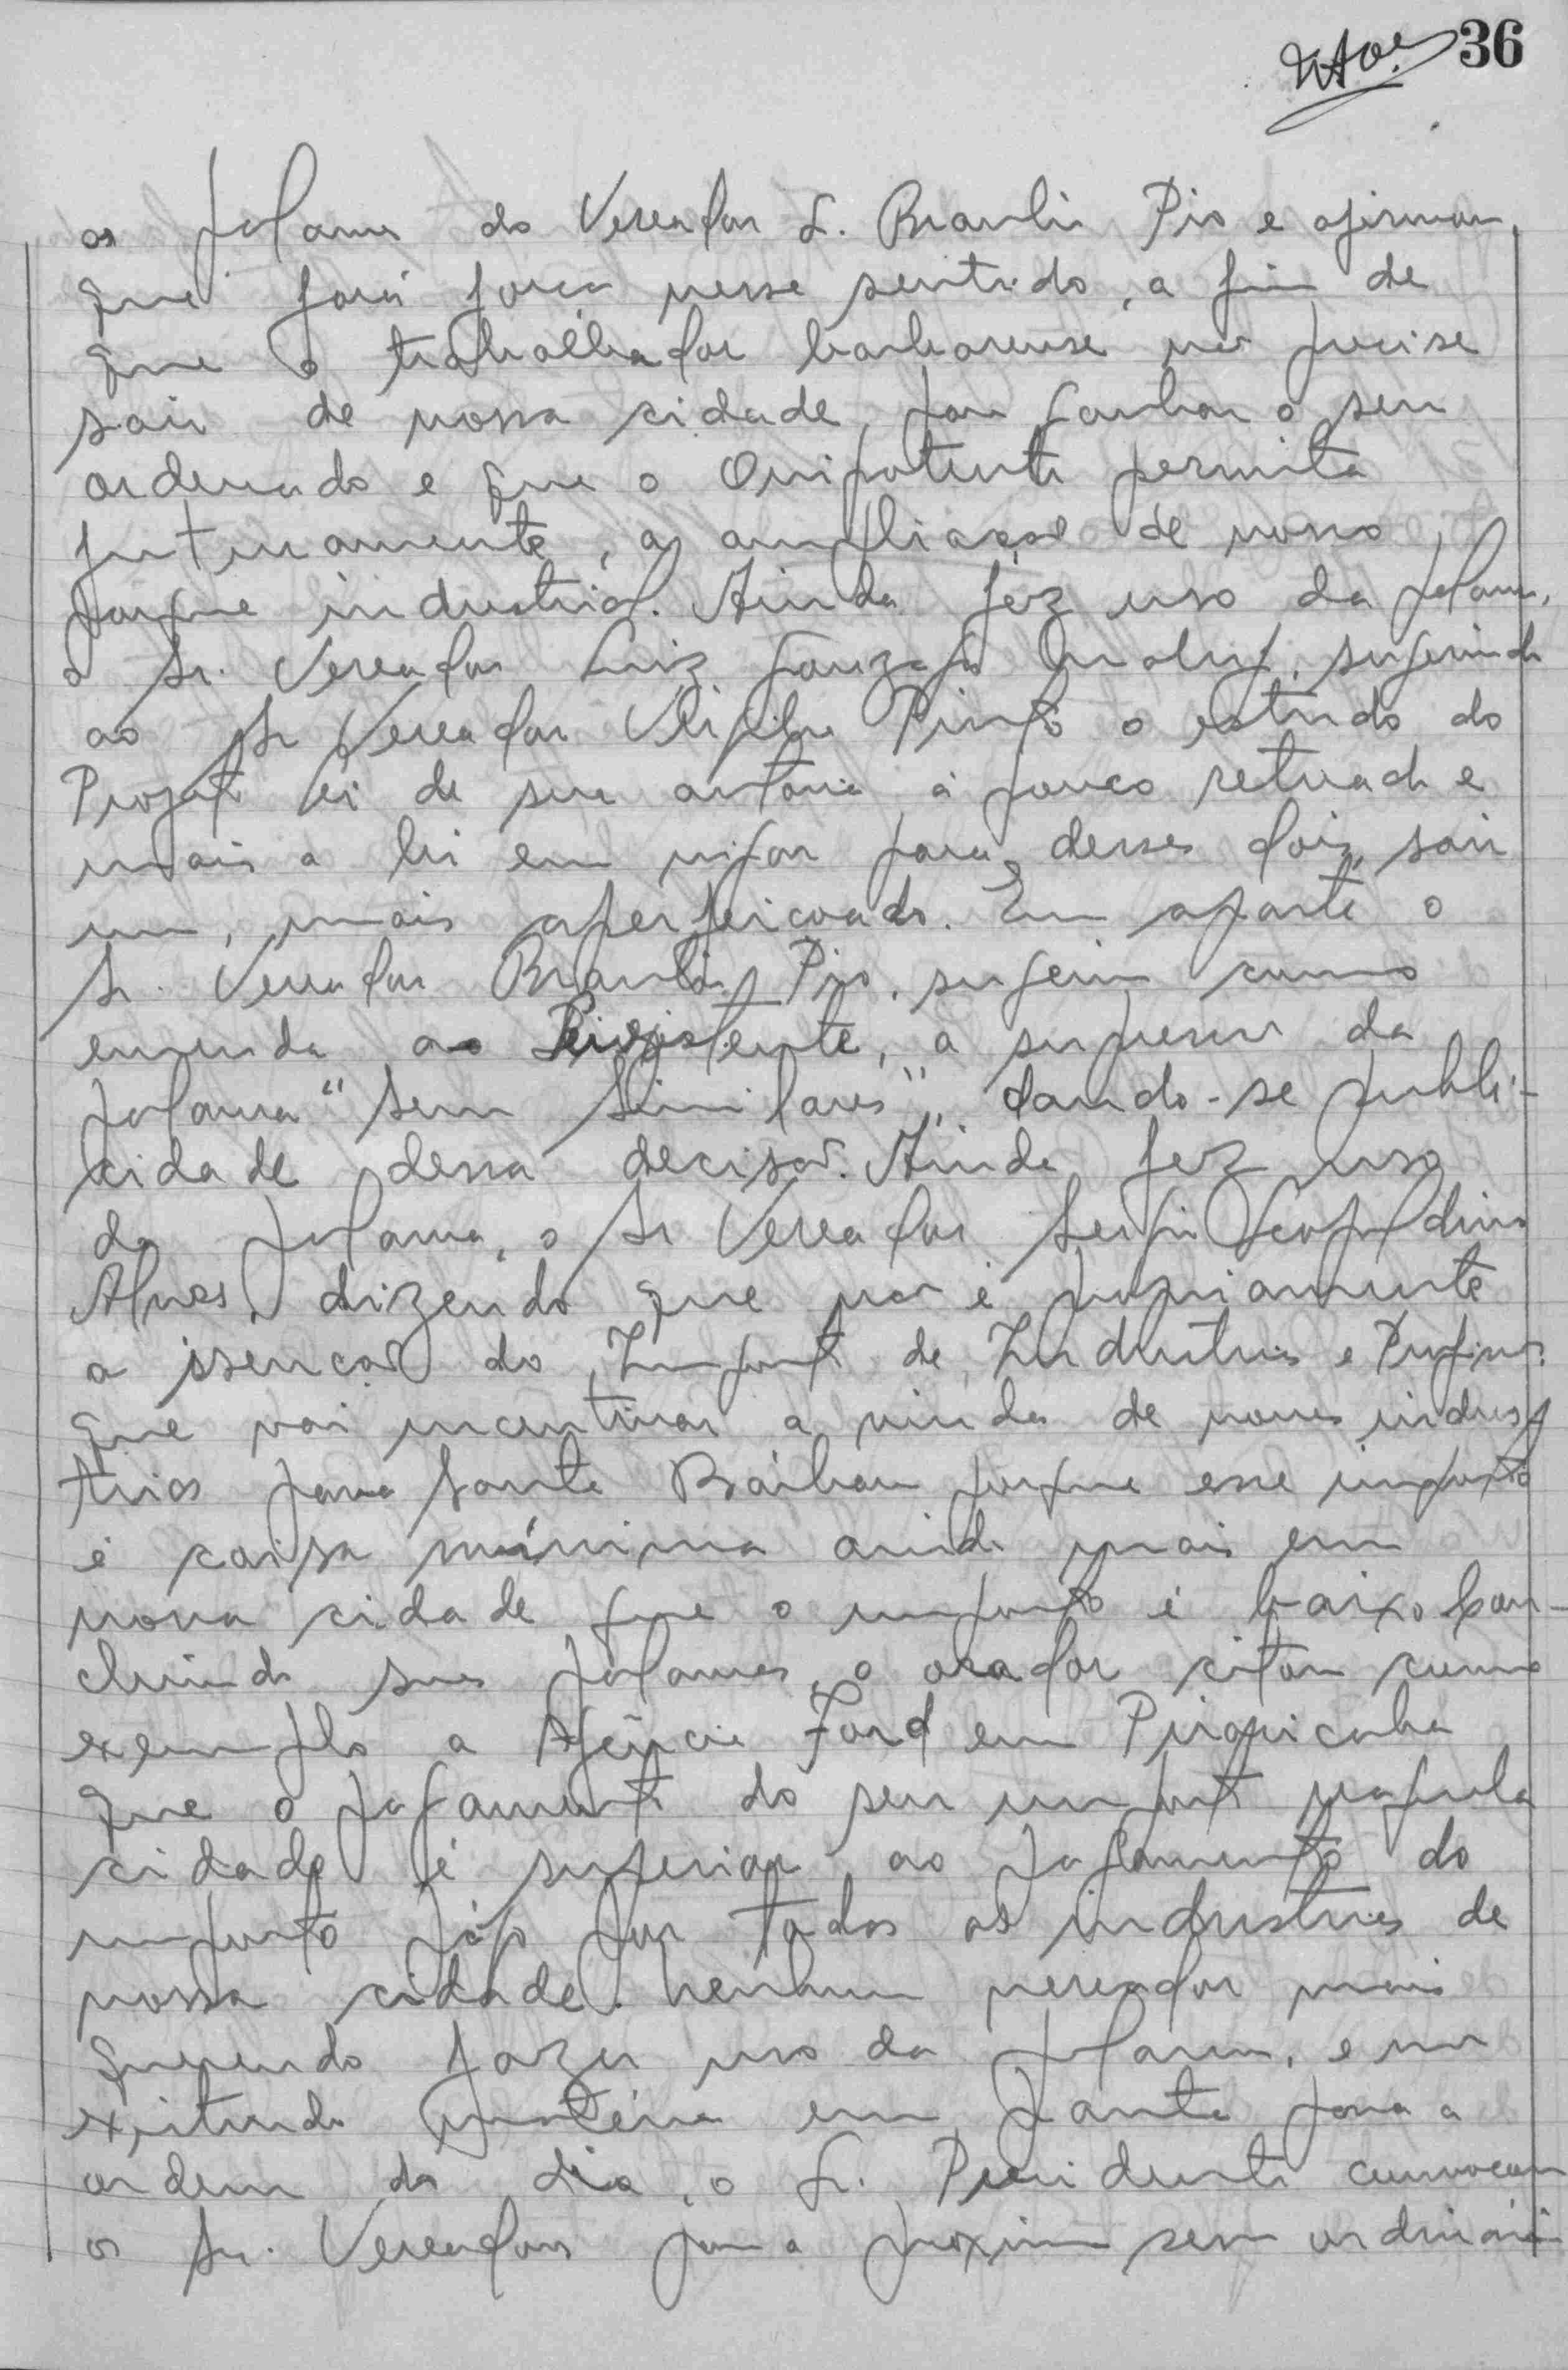 36
as palavras do Vereador S. Braulio Pio e afirmou
que fará força nesse sentido, a fim de
que o trabalhador barbarense não precise
sair de nossa cidade, para ganhar o seu
ordenado e que o Onipotente permita
futuramente, a ampliação de nosso
parque industrial. Ainda fêz uso da palavra,
o Sr. Vereador Luiz Gonzaga sugerindo
ao Sr Vereador Pinto o estudo do
Projeto lei de sua autoria a pouco retirado e
mais a lei em vigor para desses dois, sair
um, mais aperfeiçoado. Em aparte o
Sr. Vereador Braulio Pio, sugeriu como
emenda ao existente, a supressão da
palavra "sem similares", dando-se publi-
cidade dessa decisão. Ainda fez uso
da palavra, o Sr Vereador Sergio Leopoldino
Alves, dizendo que não é propriamente
a isenção do Imposto de Industrias e Profissões
que vai incentivar a vinda de novas indus-
trias para Santa Bárbara porque esse imposto
é coisa mínima ainda mais em
nossa cidade que o imposto é baixo. Con-
cluindo suas palavras, o orador citou como
exemplo a Agência Ford em Piracicaba
que o pagamento do seu imposto naquela
cidade é superior ao pagamento do
imposto pago por todas as industrias de
nossa cidade. Nenhum vereador mais
querendo fazer uso da palavra, e não
existindo matéria em pauta para a
ordem do dia, o Sr. Presidente convocou
os Srs. Vereadores para a proxima sessão ordinária